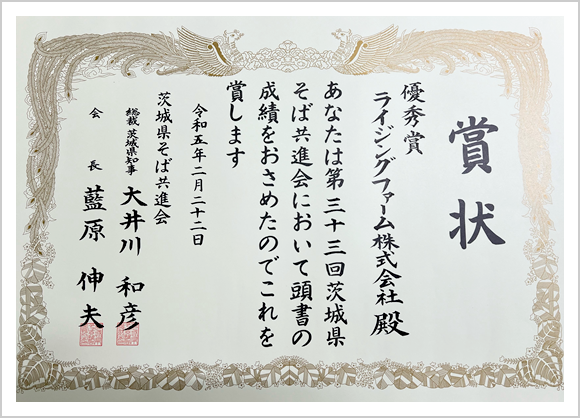 賞状
優秀賞
ライジングファーム株式会社 殿
あなたは第三十三回茨城県
そば共進会において頭書の
成績をおさめたのでこれを
賞します
令和五年二月二十二日
茨城県そば共進会
総裁 茨城県知事 大井川 和彦
会長 藍原 伸夫